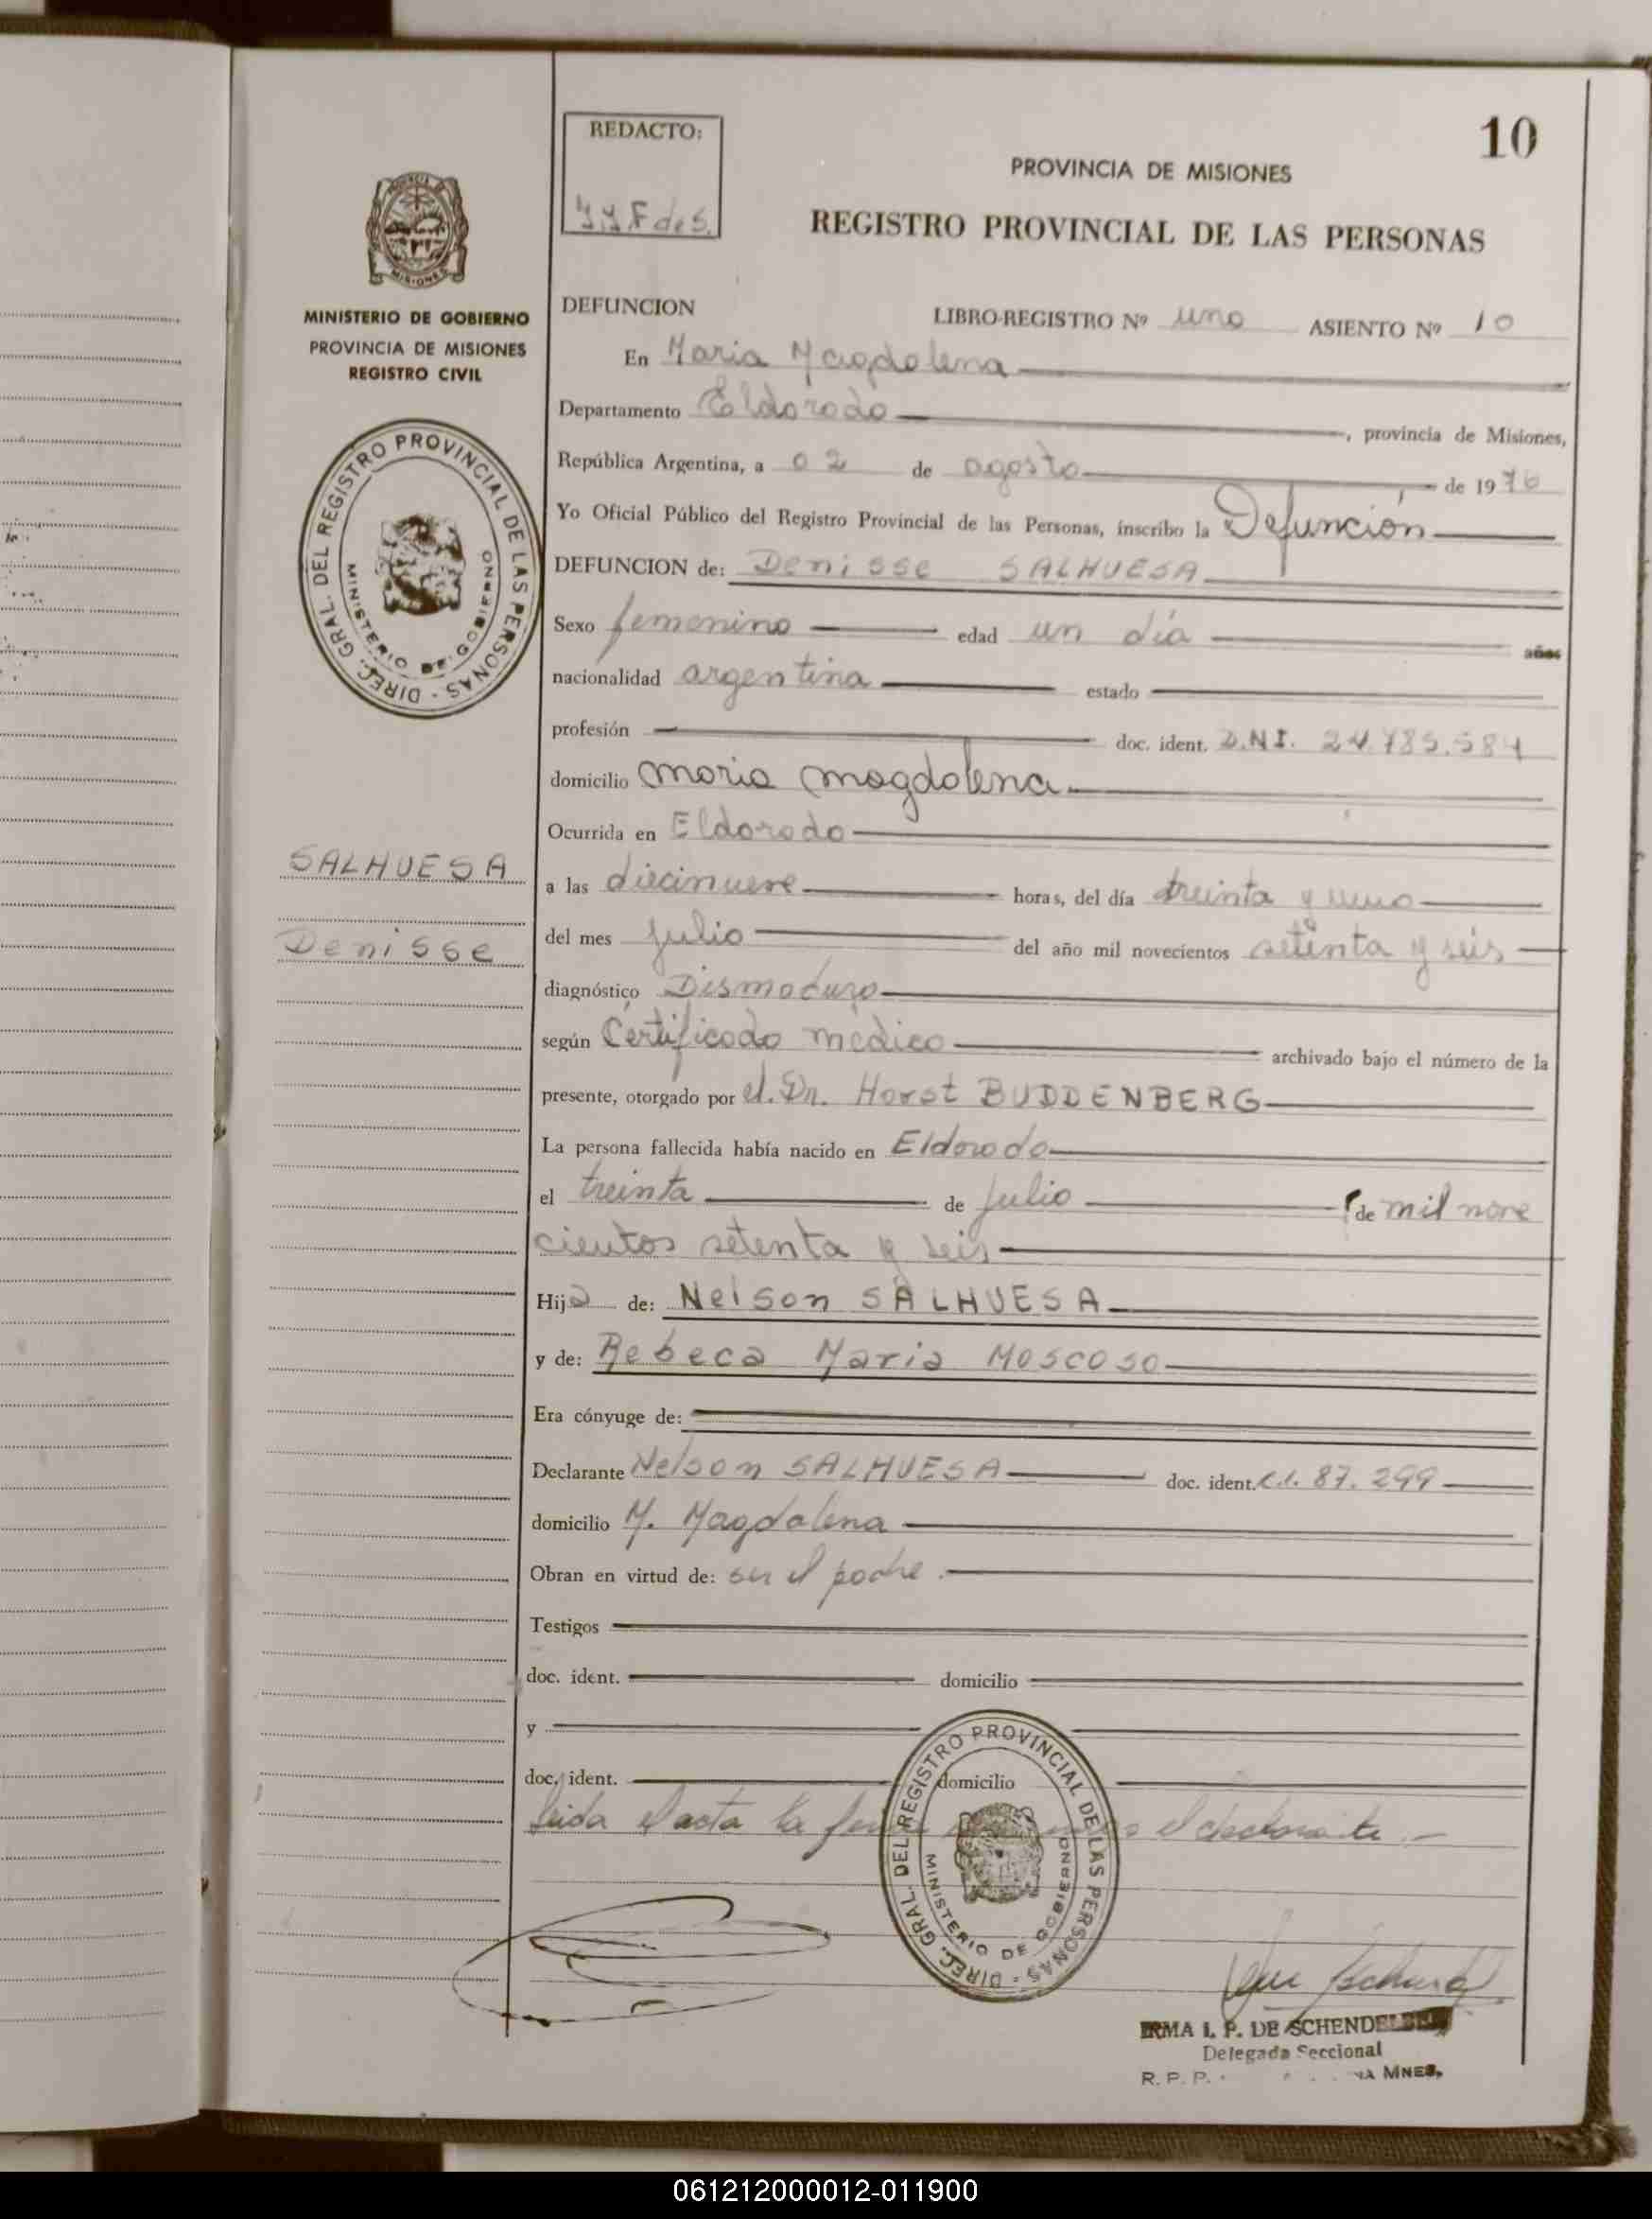 10
REDACTO:
PROVINCIA DE MISIONES
REGISTRO PROVINCIAL DE LAS PERSONAS
MINISTERIO DE GOBIERNO
PROVINCIA DE MISIONES
REGISTRO CIVIL
DIREC. GRAL. DEL REGISTRO PROVINCIAL DE LAS PERSONAS
MINISTERIO DE GOBIERNO
DEFUNCION LIBRO-REGISTRO Nº uno ASIENTO Nº 10
En Maria Magdalena
Departamento Eldorado, provincia de Misiones,
República Argentina, a 02 de agosto de 1976
Yo Oficial Público del Registro Provincial de las Personas, inscribo la Defunción
DEFUNCION de: Denisse SALHUESA
Sexo femenino edad un día años
nacionalidad argentina estado
profesión doc. ident. D.N.I. 24.785.584
domicilio maria magdalena
Ocurrida en Eldorado
SALHUESA
Denisse
a las diecinueve horas, del día treinta y uno
del mes julio del año mil novecientos setenta y seis
diagnóstico Dismaduro
según Certificado medico archivado bajo el número de la
presente, otorgado por el. Dr. Horst BUDDENBERG
La persona fallecida había nacido en Eldorado
el treinta de julio de mil nove
cientos setenta y seis
Hija de: Nelson SALHUESA
y de: Rebeca Maria MOSCOSO
Era cónyuge de:
Declarante Nelson SALHUESA doc. ident. C.I. 87.299
domicilio M. Magdalena
Obran en virtud de: ser el padre.
Testigos
doc. ident. domicilio
y
doc. ident. domicilio
leida el acta la el declarante.-
DIREC. GRAL. DEL REGISTRO PROVINCIAL DE LAS PERSONAS
MINISTERIO DE GOBIERNO
IRMA I. P. DE
Delegada Seccional
R. P. P. MNES.
061212000012-011900